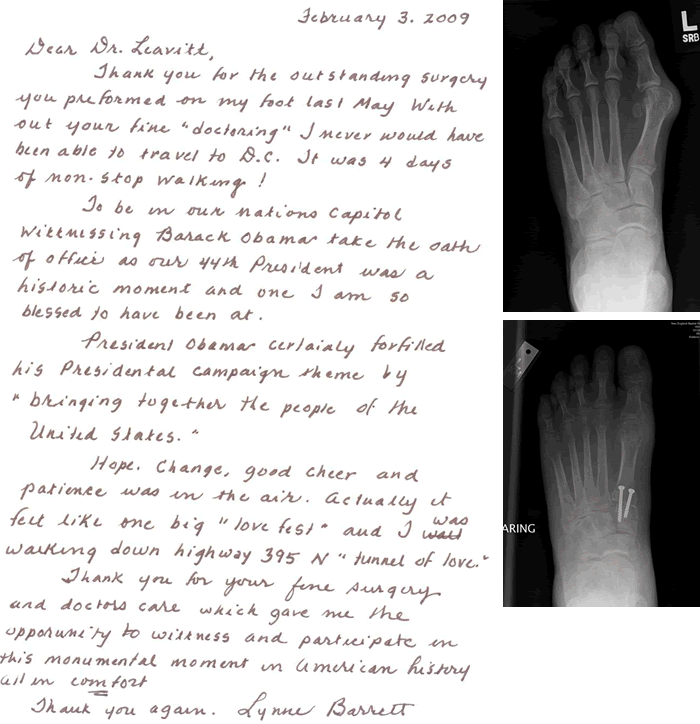 February 3. 2009
Dear Dr. Leavitt,
Thank you for the outstanding surgery
you preformed on my foot last May With
out your fine "doctoring" I never would have
been able to travel to D.C. It was 4 days
of non-stop walking!
To be in our nations Capitol
Wittnessing Barack Obama take the oath
of office as our 44th President was a
historic moment and one I am so
blessed to have been at.
President Obama certainly forfilled
his Presidental campaign theme by
"bringing together the people of the
United States."
Hope. Change, good cheer and
patience was in the air. Actually it
felt like one big "love fest" and I was
walking down highway 395 N "tunnel of love."
Thank you for your fine surgery
and doctors care which gave me the
opportunity to wittness and participate in
this monumental moment in American history
all in comfort
Thank you again. Lynne Barrett
L
SRB
ARING